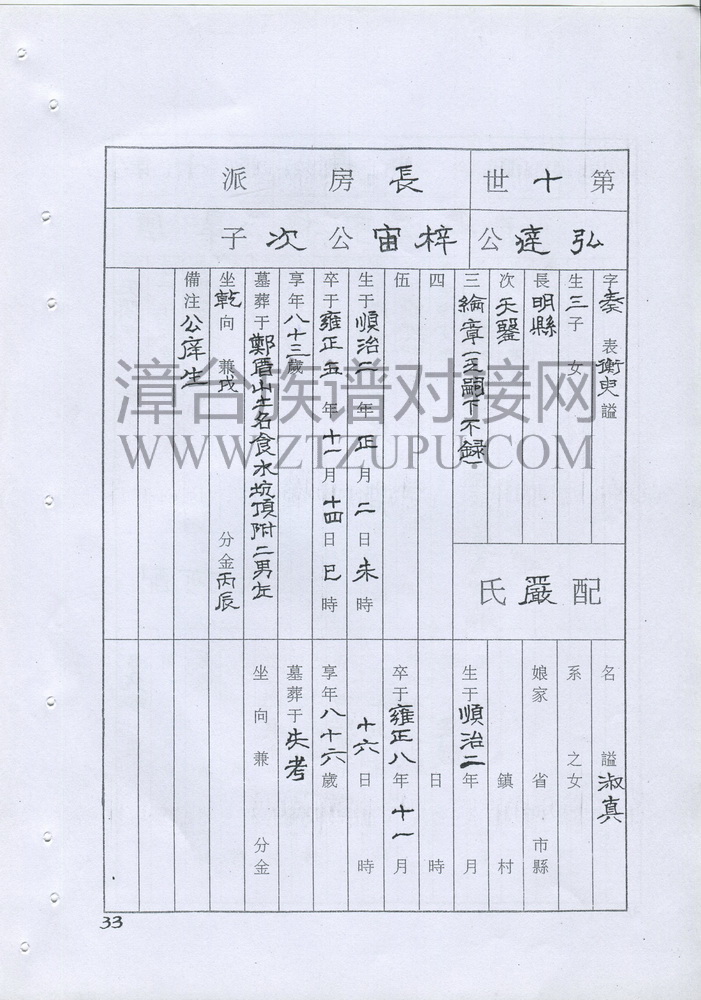 第十世
長房派
弘達公
梓宙公次子
字泰 表衡臾 謚
生三子 女
長明縣
次天毉
三綸章(乏嗣下不録)
四
伍
生于順治二年正月二日未時
卒于雍正五年十一月十四日巳時
享年八十三歲
墓葬于鄭厝山土名食水坑頂附二男左
坐乾向 兼戌 分金丙辰
備注公庠生
配嚴氏
名 謚淑真
系 之女
娘家 省 市縣
鎮 村
生于順治二年 月
日 時
卒于雍正八年十一月
十六日 時
享年八十六歲
墓葬于失考
坐 向 兼 分金
33
漳台族谱对接网
WWW.ZTZUPU.COM